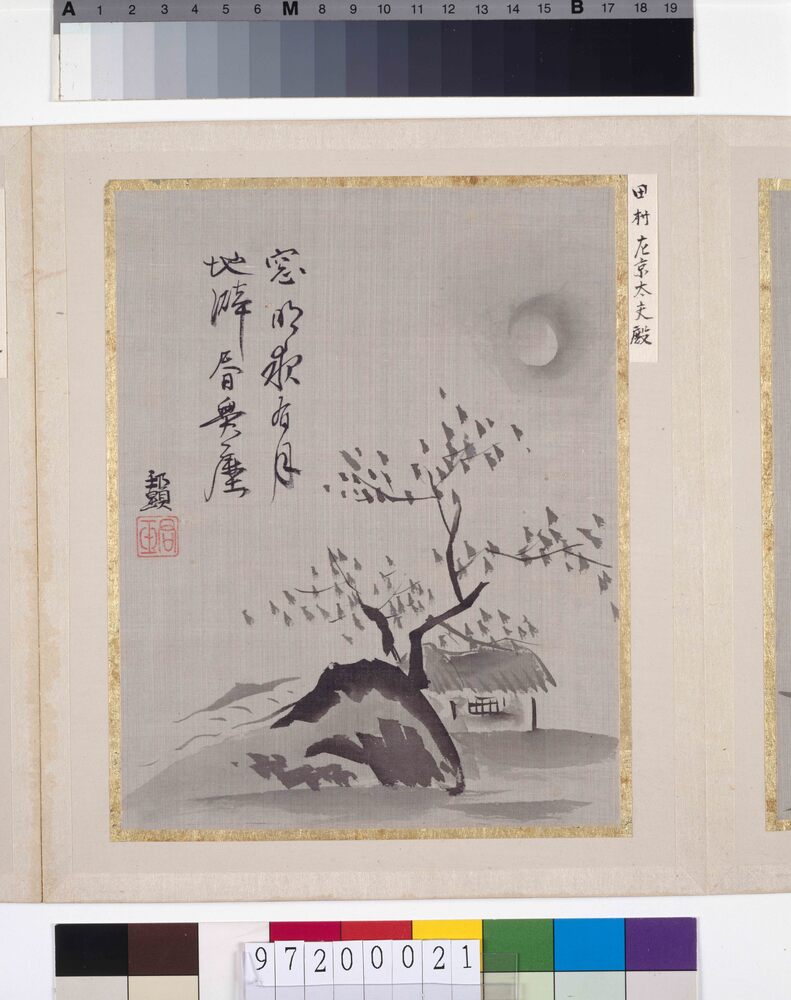 A 1 2 3 4 5 6 M 8 9 10 11 12 13 14 15 B 17 18 19
田村左京太夫殿
窓明有月
地僻無塵
邦顯
97200021